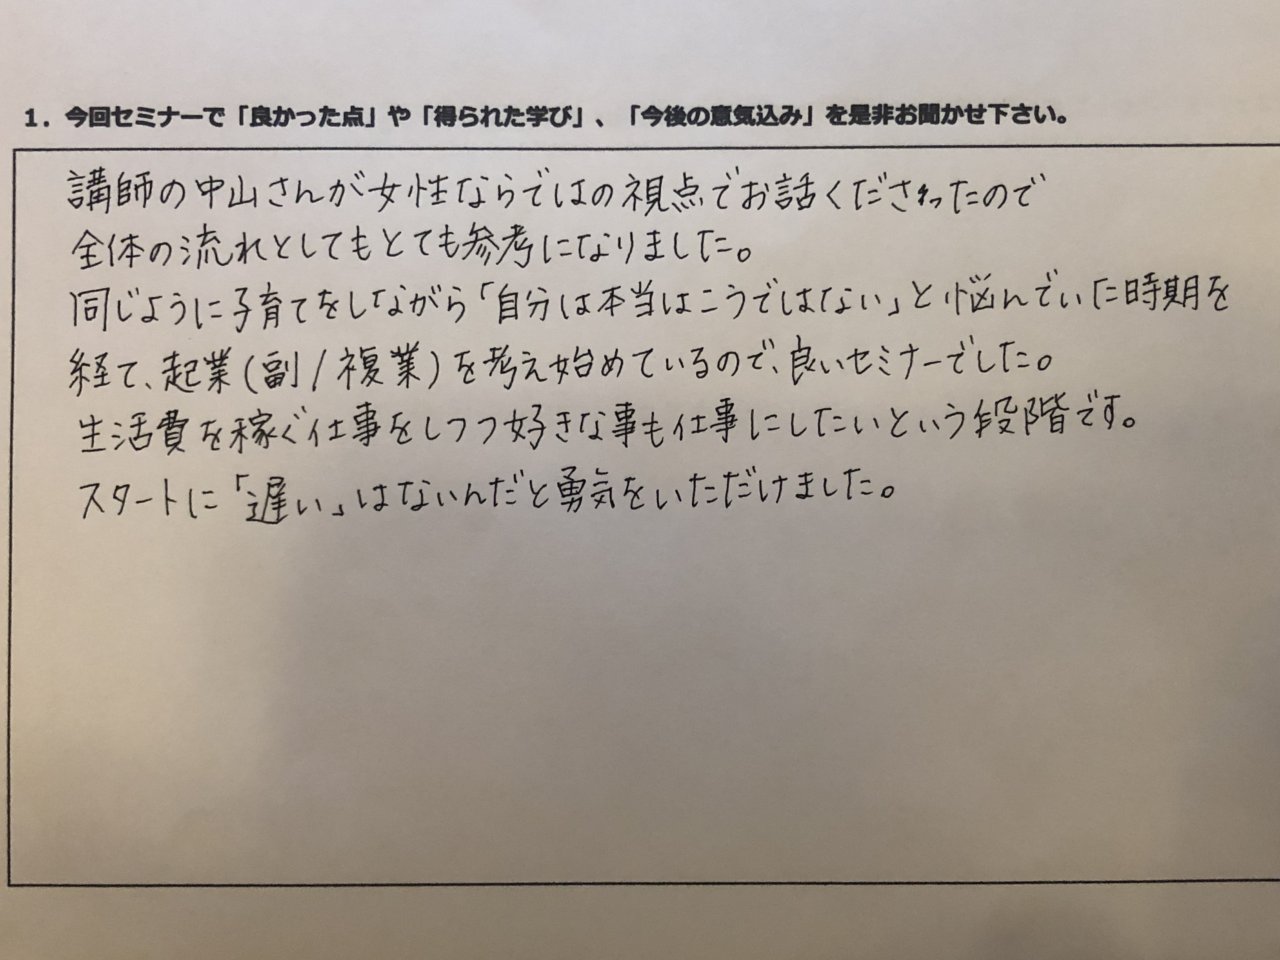 1. 今回セミナーで「良かった点」や「得られた学び」、「今後の意気込み」を是非お聞かせ下さい。
講師の中山さんが女性ならではの視点でお話くださったので
全体の流れとしてもとても参考になりました。
同じように子育てをしながら「自分は本当はこうではない」と悩んでいた時期を
経て、起業(副/複業)を考え始めているので、良いセミナーでした。
生活費を稼ぐ仕事をしつつ好きな事も仕事にしたいという段階です。
スタートに「遅い」はないんだと勇気をいただけました。